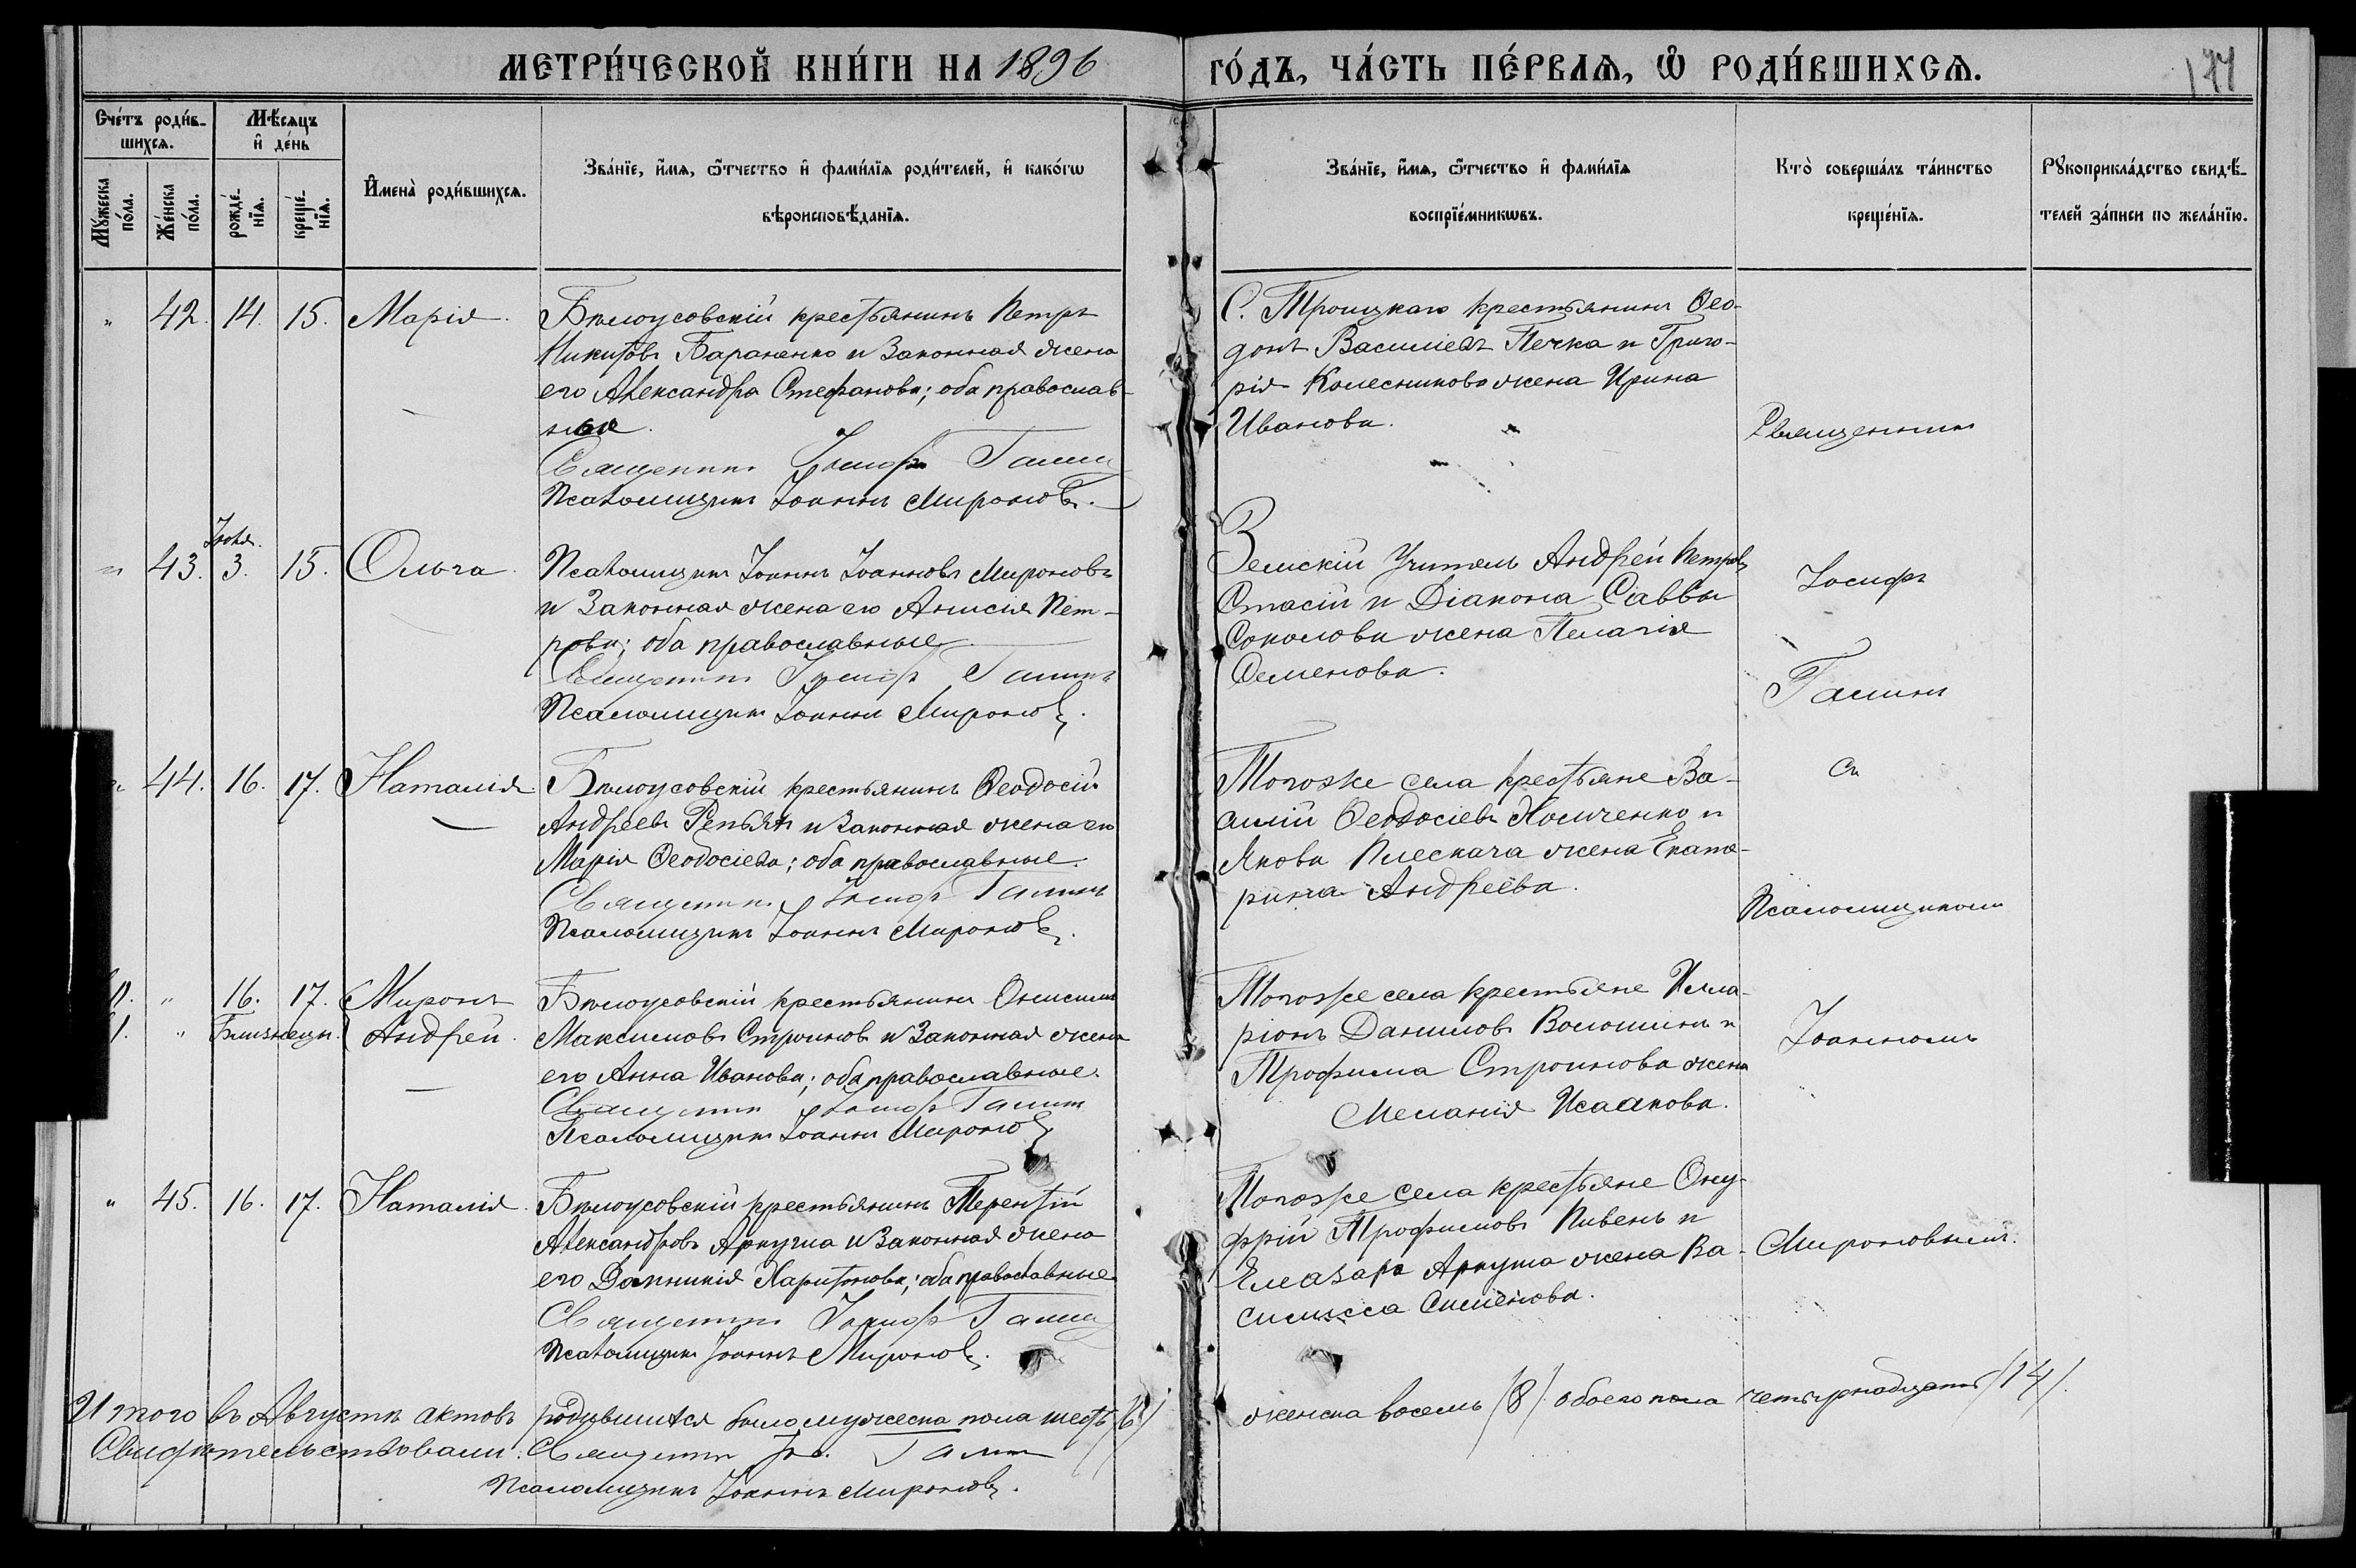 МЕТРИ́ЧЕСКОЙ КНИ́ГИ НА 1896
ГО́ДЪ, ЧА́СТЬ ПЕ́РВАѦ, Ѡ РОДИ́ВШИХСѦ.
Сче́тъ роди́в-
шихсѧ.
Мѣ́сѧцъ
и де́нь
Мꙋ́жеска
по́ла.
Же́нска
по́ла.
рожде́-
нїѧ.
креще́-
нїѧ.
Имена̀ роди́вшихсѧ.
Зва́нїе, и́мѧ, ѻ҆́тчество и фами́лїѧ роди́телей, и како́гѡ
вѣроисповѣ́данїѧ.
Зва́нїе, и́мѧ, ѻ҆́тчество и фами́лїѧ
воспрїе́мникѡвъ.
Кто̀ соверша́лъ та́инство
креще́нїѧ.
Рꙋкоприкла́дство свидѣ́-
телей за́писи по жела́нїю.
" 42. 14. 15. Марія.
Бѣлоусовскій крестьянинъ Петръ
Никитовъ Бараненко и законная жена
его Александра Стефанова; оба православ-
ные.
Священникъ Іосифъ Галин
Псаломщикъ Іоаннъ Мироновъ.
С. Троицкаго крестьянинъ Ѳео-
донъ Василіевъ Печка и Григо-
рія Колесникова жена Ирина
Иванова.
Священникъ
" 43. Іюля. 3. 15. Ольга.
Псаломщикъ Іоаннъ Іоанновъ Мироновъ
и законная жена его Анисія Пет-
рова; оба православные
Священникъ Іосифъ Галинъ
Псаломщикъ Іоаннъ Мироновъ.
Земскій Учитель Андрей Петровъ
Стасій и Діакона Саввы
Соколова жена Пелагія
Семенова.
Іосифъ
Галинъ
" 44. 16. 17. Наталія.
Бѣлоусовскій крестьянинъ Ѳеодосій
Андреевъ Репьяхъ и законная жена его
Марія Ѳеодосіева; оба православные.
Священникъ Іосифъ Галинъ
Псаломщикъ Іоаннъ Мироновъ.
Тогоже села крестьяне Ва-
силій Ѳеодосіевъ Носиченко и
Якова Плескача жена Екате-
рина Андреева.
съ
Псаломщикомъ
" 16. 17. Миронъ
" Близнецы. Андрей.
Бѣлоусовскій крестьянинъ Онисимъ
Максимовъ Строиновъ и законная жена
его Анна Иванова; оба православные.
Священникъ Іосифъ Галин
Псаломщикъ Іоаннъ Мироновъ
Тогоже села крестьяне Илла-
ріонъ Даниловъ Волошинъ и
Трофима Строинова жена
Меланія Исаакова.
Іоанномъ
" 45. 16. 17. Наталія.
Бѣлоусовскій крестьянинъ Терентій
Александровъ Аркуша и законная жена
его Домникія Харитонова; оба православные
Священникъ Іосифъ Галин
Псаломщикъ Іоаннъ Мироновъ.
Тогоже села крестьяне Ону-
фрій Трофимовъ Пивень и
Елеазара Аркуша жена Ва-
силисса Сименова.
Мироновымъ.
Итого въ Августѣ актовъ родившихся было мужеска пола шесть /6/
женска восемь /8/ обоего пола четырнадцать /14/.
Свидѣтельствовали: Священникъ Іос. Галин
Псаломщикъ Іоаннъ Мироновъ.